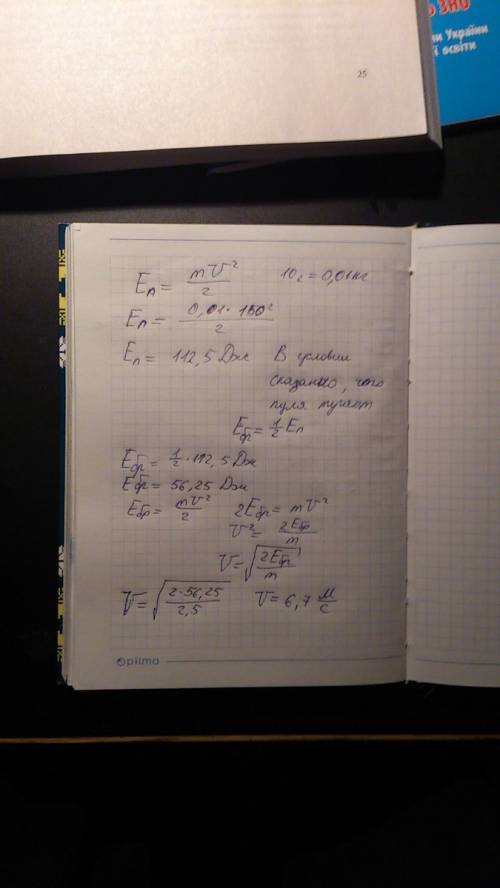 25
ЗНО
України
освіти
Eп = mV²/2 10г = 0,01кг
Eп = 0,01·150²/2
Eп = 112,5 Дж В условии
сказанно, что
пуля
Eбр = 1/2 Eп
Eбр = 1/2 · 112,5 Дж
Eбр = 56,25 Дж
Eбр = mV²/2 2Eбр = mV²
V² = 2Eбр/m
V = √(2Eбр/m)
V = √(2·56,25/2,5) V = 6,7 м/с
Optima